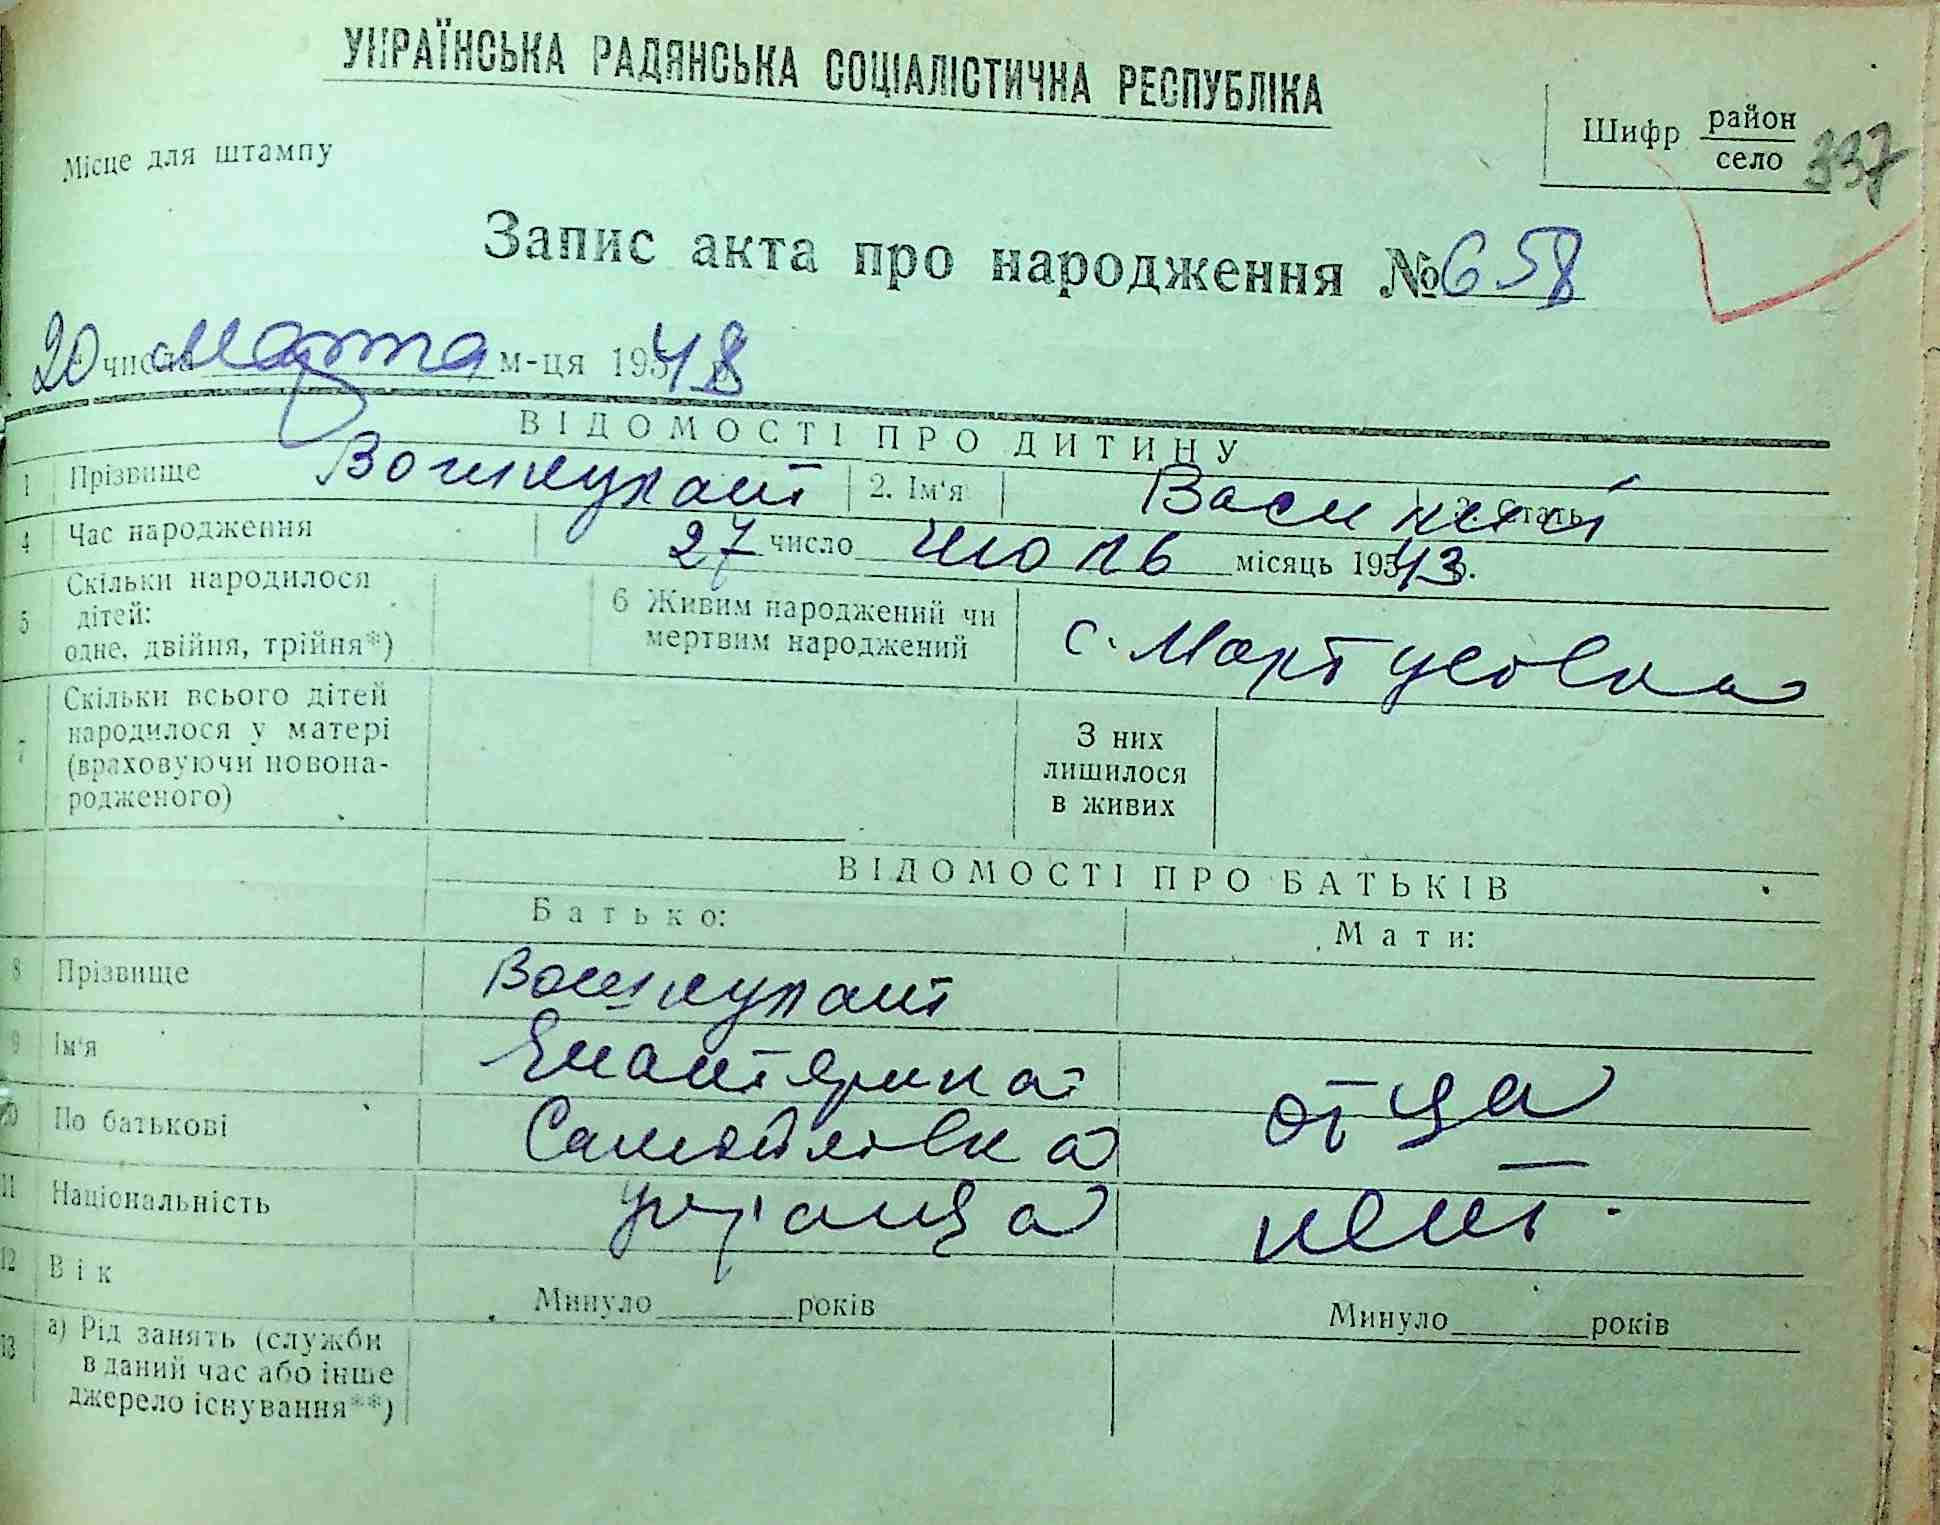 УКРАЇНСЬКА РАДЯНСЬКА СОЦІАЛІСТИЧНА РЕСПУБЛІКА
Місце для штампу
Шифр район
село 337
Запис акта про народження № 658
20 числа марта м-ця 1948
ВІДОМОСТІ ПРО ДИТИНУ
1 Прізвище Вошкулат 2. Ім'я Василий 3. Стать
4 Час народження 27 число июль місяць 1943.
5 Скільки народилося дітей: одне, двійня, трійня*) 6 Живим народжений чи мертвим народжений с. Мартусовка
7 Скільки всього дітей народилося у матері (враховуючи новонародженого) З них лишилося в живих
ВІДОМОСТІ ПРО БАТЬКІВ
Батько: Мати:
8 Прізвище Вошкулат
9 Ім'я Екатярина отца
10 По батькові Самойловна
11 Національність укр-анца нет.
12 Вік Минуло років Минуло років
13 а) Рід занять (служби в даний час або інше джерело існування**)